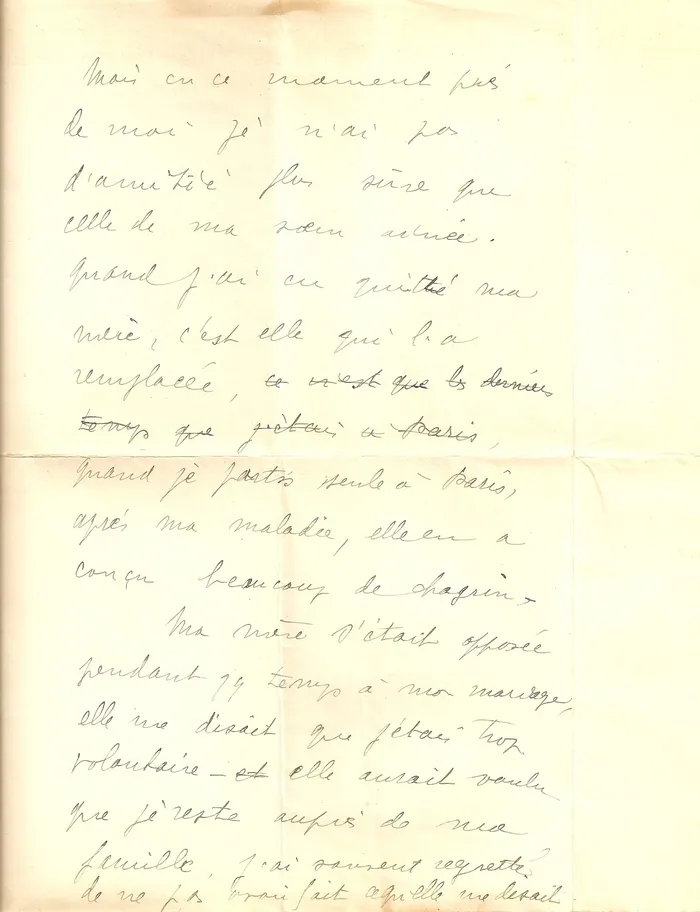 Mais en ce moment près
de moi je n'ai pas
d'amitié plus sûre que
celle de ma sœur aînée.
quand j'ai eu quitté ma
mère, c'est elle qui l'a
remplacée, ce n'est que les derniers
temps que j'étais à Paris,
quand je partis seule à Paris,
après ma maladie, elle en a
conçu beaucoup de chagrin.
Ma mère s'était opposée
pendant qq temps à mon mariage,
elle me disait que j'étais trop
volontaire – et elle aurait voulu
que je reste auprès de ma
famille, j'ai souvent regretté
de ne pas avoir fait ce qu'elle me disait